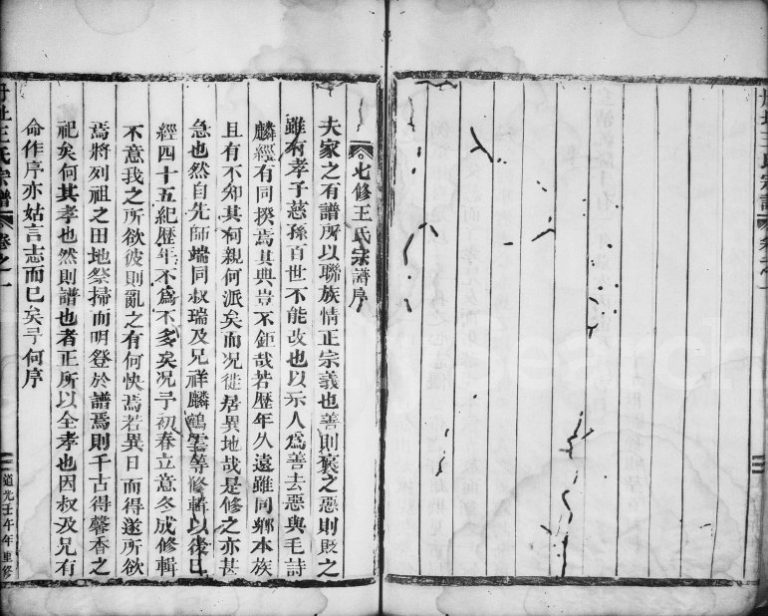 七修王氏宗譜序
夫家之有譜所以聯族情正宗義也善則褒之惡則貶之
雖有孝子慈孫百世不能改也以示人為善去惡與毛詩
麟經有同揆焉其典豈不鉅哉若歷年久遠雖同鄉本族
且有不知其何親何派矣而况徙居異地哉是修之亦甚
急也然自先師端同叔瑞及兄祥麟鶴雲等修輯以後已
經四十五紀歷年不為不多矣况予初春立意冬成修輯
不意我之所欲彼則亂之有何快焉若異日而得遂所欲
焉將列祖之田地祭掃而明登於譜焉則千古得馨香之
祀矣何其孝也然則譜也者正所以全孝也因叔及兄有
命作序亦姑言志而已矣予何序
王氏宗譜
卷之一
道光壬午年重修